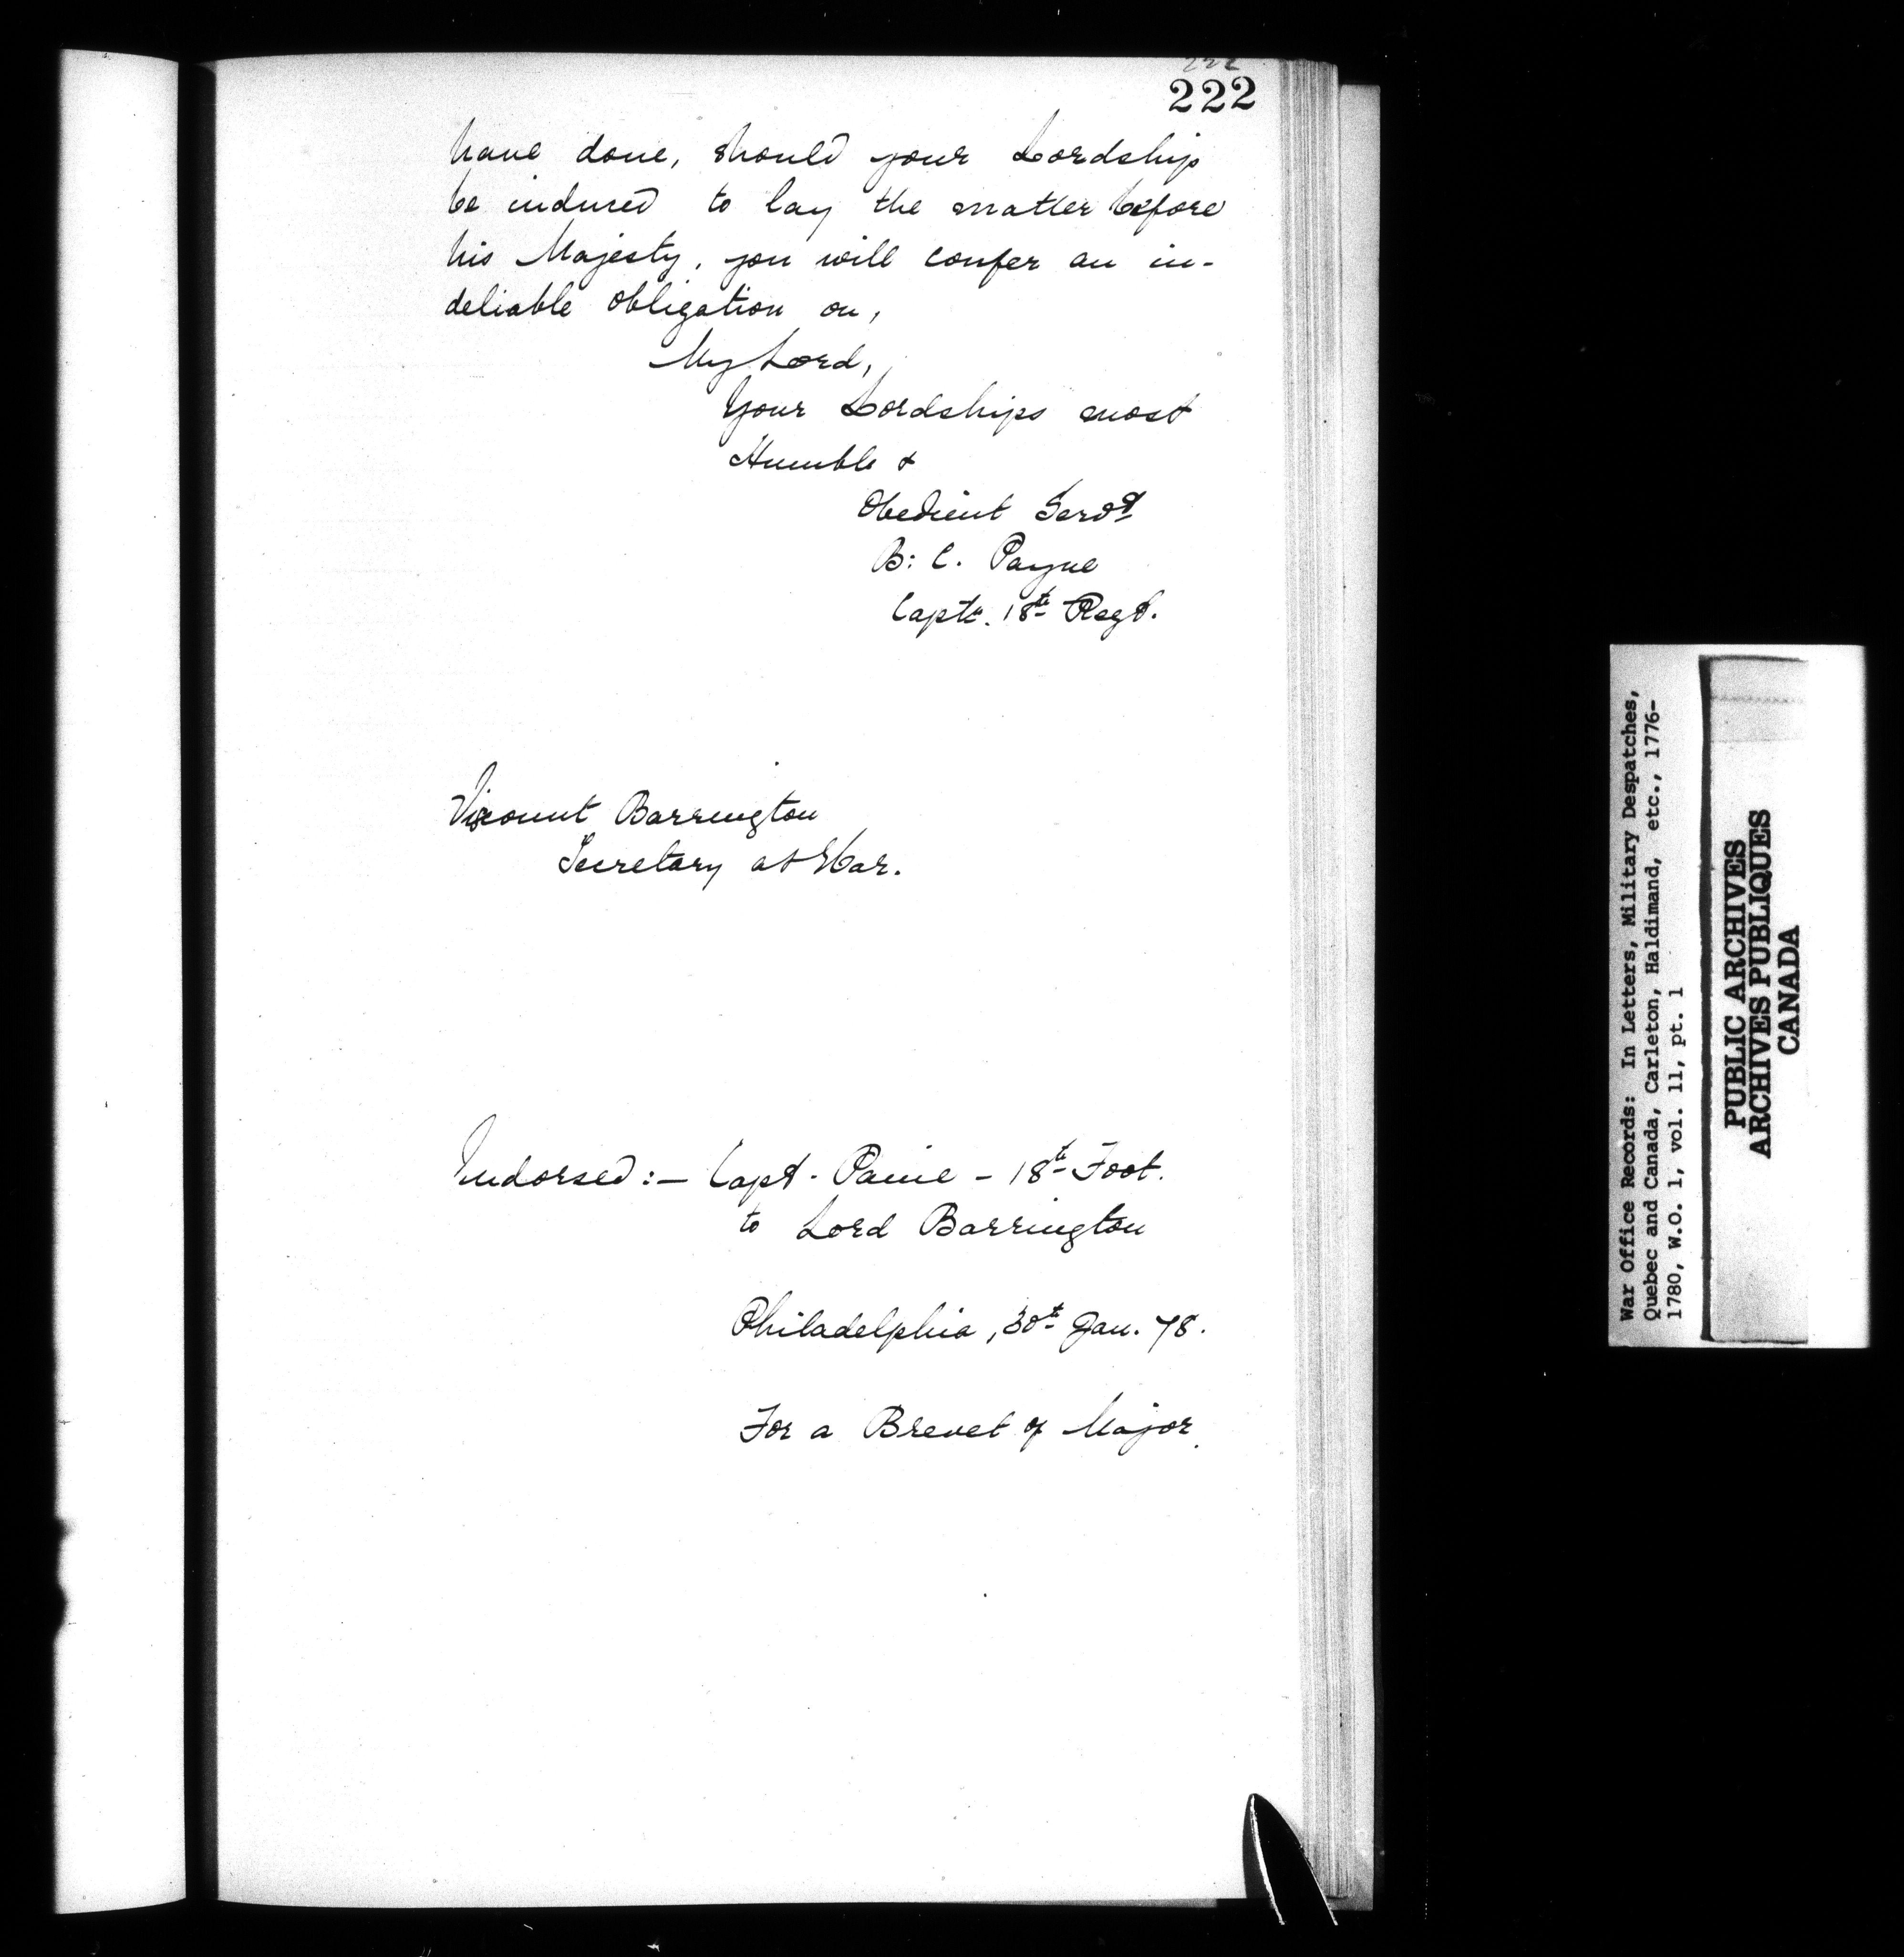 222
222
have done, should your Lordship
be induced to lay the matter before
his Majesty, you will confer an in-
deliable obligation on,
My Lord,
Your Lordships most
Humble &
Obedient Servt
B: C. Payne
Captn. 18th Regt.
Viscount Barrington
Secretary at War.
Indorsed:— Capt. Paine – 18th Foot.
to Lord Barrington
Philadelphia, 30th Jan. 78.
For a Brevet of Major.
War Office Records: In Letters, Military Despatches,
Quebec and Canada, Carleton, Haldimand, etc., 1776-
1780, W.O. 1, vol. 11, pt. 1
PUBLIC ARCHIVES
ARCHIVES PUBLIQUES
CANADA